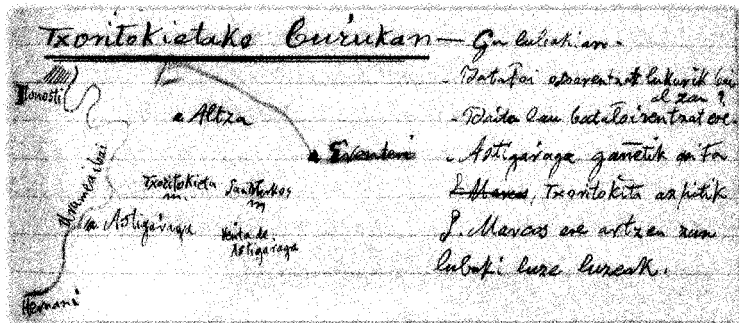 Txoritokietako buŕukan — Gu lubakian.
Donosti
Altza
Errenteri
Urumea ibai
Txoritokieta
m.
San Markos
m
Astigaŕaga
Venta de
Astigaŕaga
Hernani
- Batałoi osoarentzat lekurik ba
al zan?
- Baita lau batałoirentzat ere.
- Astigaŕaga gañetik asita
S. Marcos, Txoritokieta azpitik
S. Marcos ere artzen zun
lubaki luze luzeak.